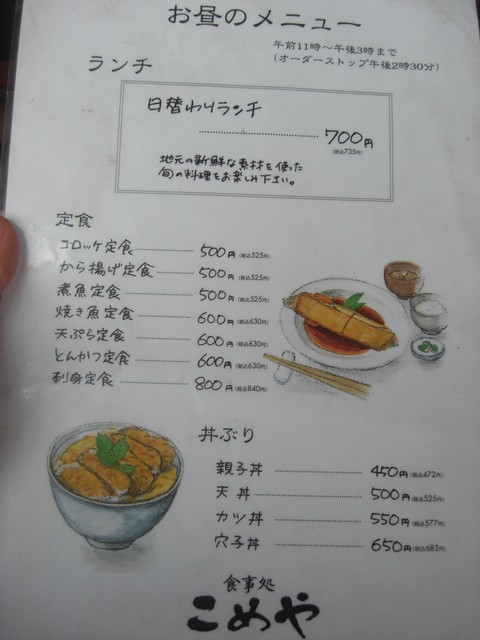 お昼のメニュー
午前11時～午後3時まで
(オーダーストップ午後2時30分)
ランチ
日替わりランチ
700円
(税込735円)
地元の新鮮な素材を使った
旬の料理をお楽しみ下さい。
定食
コロッケ定食 500円(税込525円)
から揚げ定食 500円(税込525円)
煮魚定食 500円(税込525円)
焼き魚定食 600円(税込630円)
天ぷら定食 600円(税込630円)
とんかつ定食 600円(税込630円)
刺身定食 800円(税込840円)
丼ぶり
親子丼 450円(税込472円)
天丼 500円(税込525円)
カツ丼 550円(税込577円)
穴子丼 650円(税込682円)
食事処
こめや